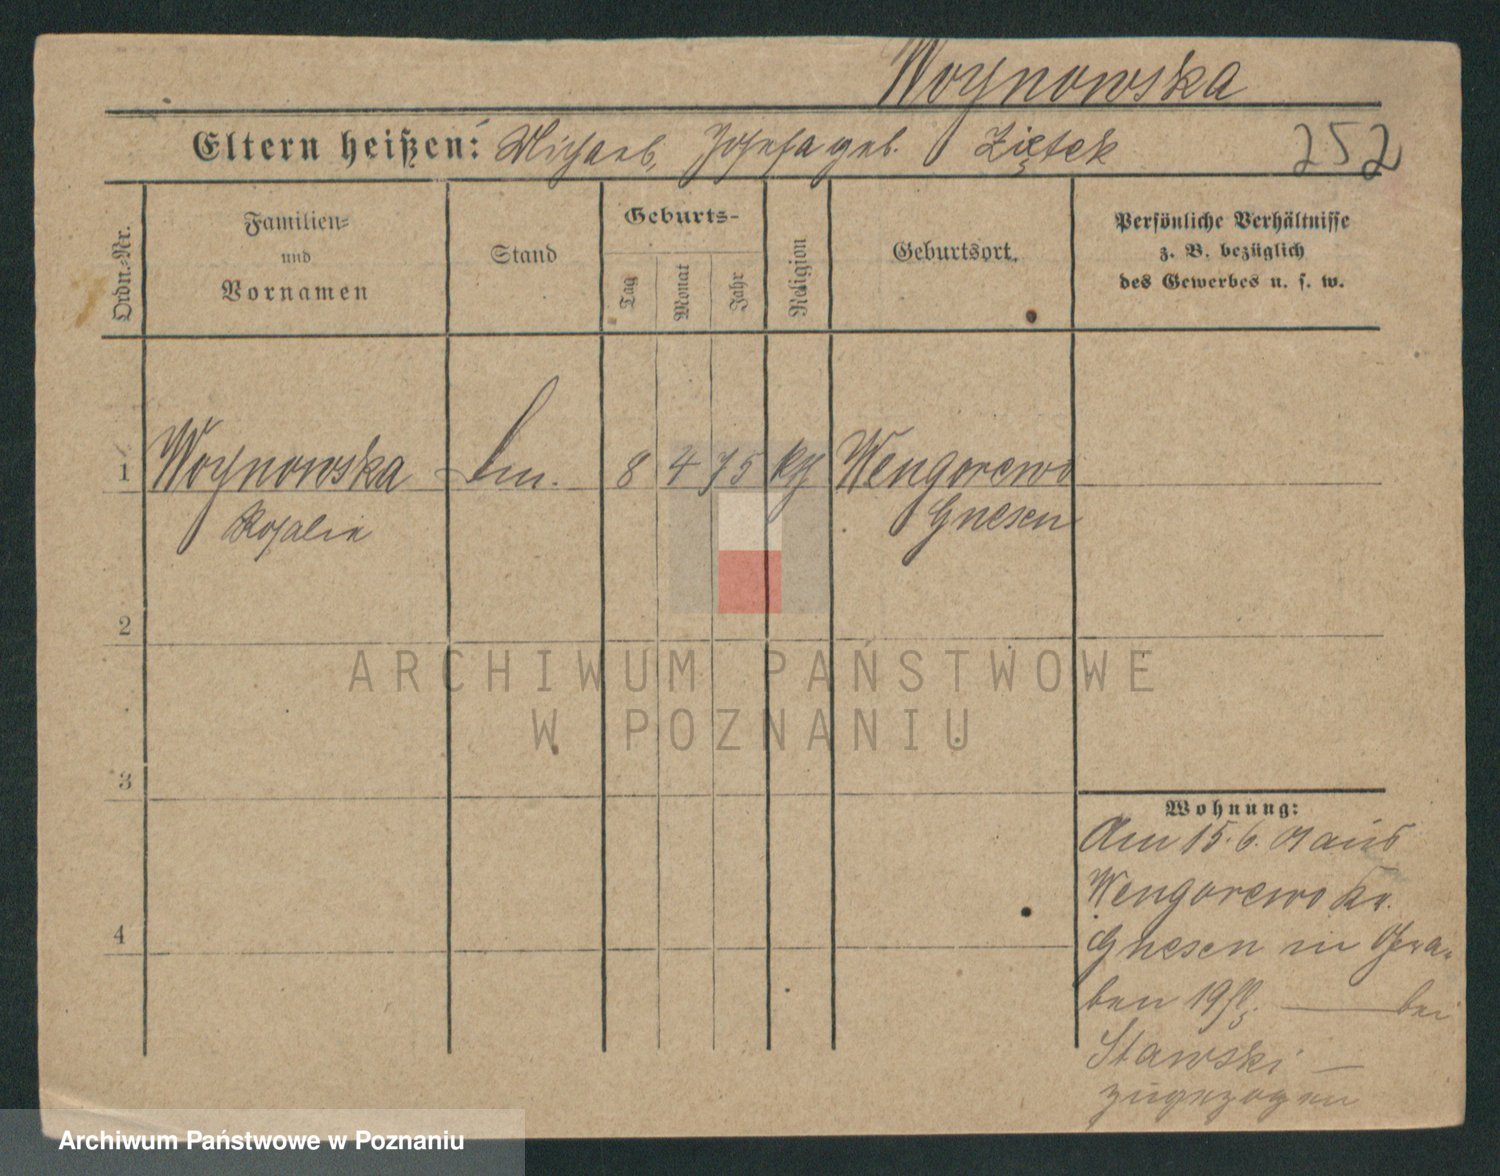 Woynowska
Eltern heißen: Michael, Josefa geb. Ziętek 252
Ordn.-Nr.
Familien-
und
Vornamen
Stand
Geburts-
Tag
Monat
Jahr
Religion
Geburtsort.
Persönliche Verhältnisse
z. B. bezüglich
des Gewerbes u. s. w.
1 Woynowska 8 4 75 Wengorewo
Rosalie Gnesen
2
3
4
Wohnung:
Am 15. 6. 01 aus
Wengorewo Kr.
Gnesen in Gra-
ben 19 bei
Stawski —
zugezogen
ARCHIWUM PAŃSTWOWE
W POZNANIU
Archiwum Państwowe w Poznaniu